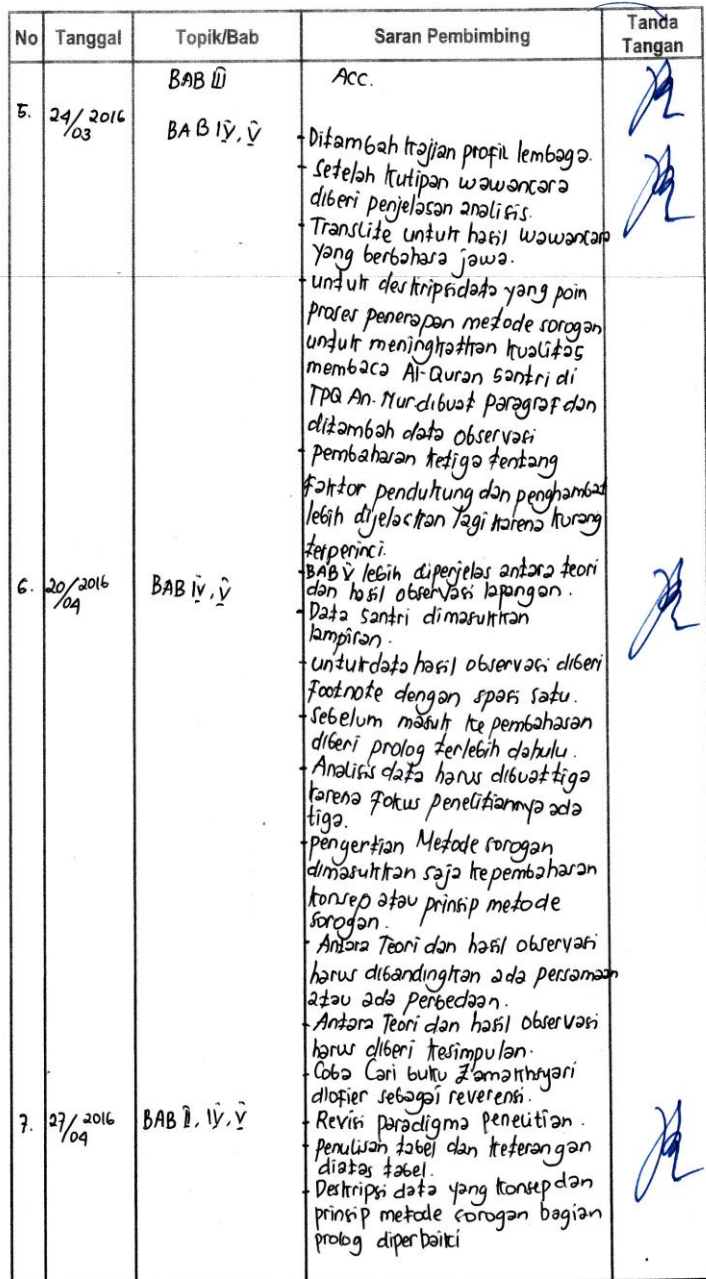 No Tanggal Topik/Bab Saran Pembimbing Tanda Tangan
BAB III Acc.
5. 24/03 2016 BAB IV, V - Ditambah kajian profil lembaga.
- Setelah kutipan wawancara
diberi penjelasan analisis.
- Translite untuk hasil wawancara
yang berbahasa jawa.
- untuk deskripsi data yang poin
proses penerapan metode sorogan
untuk meningkatkan kualitas
membaca Al-Quran santri di
TPQ An-Nur dibuat paragraf dan
ditambah data observasi
- pembahasan ketiga tentang
faktor pendukung dan penghambat
lebih dijelaskan lagi karena kurang
terperinci.
6. 20/04 2016 BAB IV, V - BAB V lebih diperjelas antara teori
dan hasil observasi lapangan.
- Data santri dimasukkan
lampiran.
- untuk data hasil observasi diberi
footnote dengan spasi satu.
- Sebelum masuk ke pembahasan
diberi prolog terlebih dahulu.
- Analisis data harus dibuat tiga
karena fokus penelitiannya ada
tiga.
- pengertian Metode sorogan
dimasukkan saja ke pembahasan
konsep atau prinsip metode
sorogan.
- Antara Teori dan hasil observasi
harus dibandingkan ada persamaan
atau ada perbedaan.
- Antara Teori dan hasil observasi
harus diberi kesimpulan.
- Coba Cari buku Zamakhsyari
dlofier sebagai reverensi.
7. 27/04 2016 BAB II, IV, V - Revisi paradigma penelitian.
- penulisan tabel dan keterangan
diatas tabel.
- Deskripsi data yang konsep dan
prinsip metode sorogan bagian
prolog diperbaiki